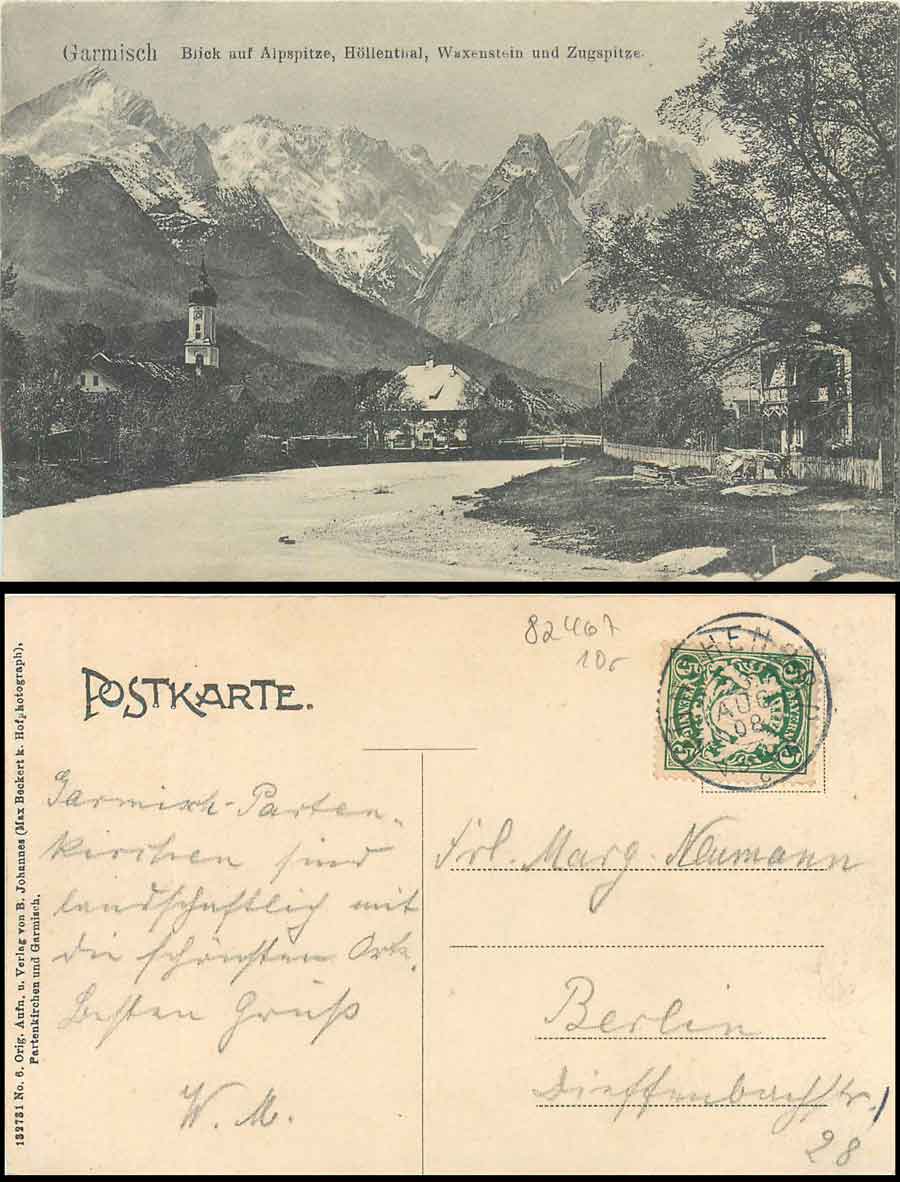 Garmisch Blick auf Alpspitze, Höllenthal, Waxenstein und Zugspitze.
82467
10,-
POSTKARTE.
5 BAYERN 5
AUG
08
132731 No. 6. Orig. Aufn. u. Verlag von B. Johannes (Max Beckert k. Hofphotograph),
Partenkirchen und Garmisch.
Garmisch-Parten-
kirchen sind
landschaftlich mit
die schönsten Orte.
Besten Gruß
W. M.
Frl. Marg. Neumann
Berlin
Dieffenbachstr.
28